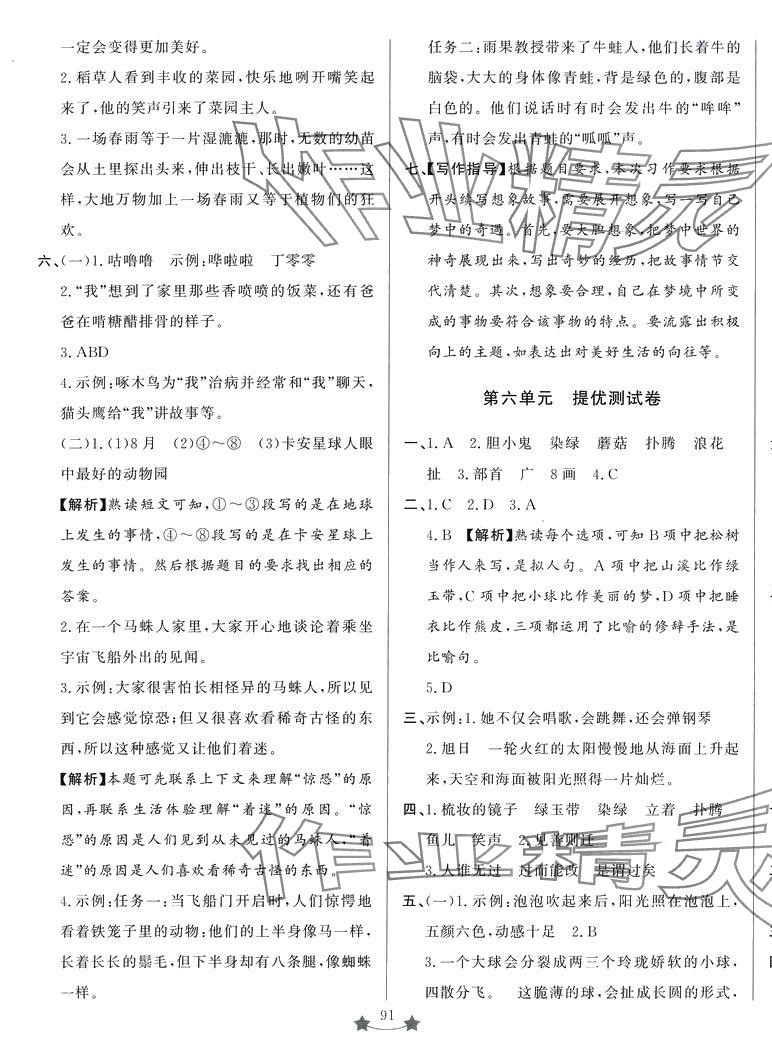 一定会变得更加美好。
2. 稻草人看到丰收的菜园，快乐地咧开嘴笑起
来了，他的笑声引来了菜园主人。
3. 一场春雨等于一片湿漉漉，那时，无数的幼苗
会从土里探出头，伸出枝干、长出嫩叶……这
样，大地万物加上一场春雨又等于植物们的狂
欢。
六、(一)1. 咕噜噜　示例：哗啦啦　丁零零
2.“我”想到了家里那些香喷喷的饭菜，还有爸
爸在啃糖醋排骨的样子。
3. ABD
4. 示例：啄木鸟为“我”治病并经常和“我”聊天，
猫头鹰给“我”讲故事等。
(二)1.(1)8月　(2)④～⑧　(3)卡安星球人眼
中最好的动物园
【解析】熟读短文可知，①～③段写的是在地球
上发生的事情，④～⑧段写的是在卡安星球上
发生的事情。然后根据题目的要求找出相应的
答案。
2. 在一个马蛛人家里，大家开心地谈论着乘坐
宇宙飞船外出的见闻。
3. 示例：大家很害怕长相怪异的马蛛人，所以见
到它会感觉惊恐；但又很喜欢看稀奇古怪的东
西，所以这种感觉又让他们着迷。
【解析】本题可先联系上下文来理解“惊恐”的原
因，再联系生活体验理解“着迷”的原因。“惊
恐”的原因是人们见到了从未见过的马蛛人，“着
迷”的原因是人们喜欢看稀奇古怪的东西。
4. 示例：任务一：当飞船门开启时，人们惊愕地
看着铁笼子里的动物：他们的上半身像马一样，
长着长长的鬃毛，但下半身却有八条腿，像蜘蛛
一样。
任务二：雨果教授带来了牛蛙人，他们长着牛的
脑袋，大大的身体像青蛙，背是绿色的，腹部是
白色的。他们说话时有时会发出牛的“哞哞”
声，有时会发出青蛙的“呱呱”声。
七、【写作指导】根据题目要求，本次习作要求根据
开头续写想象故事，需要展开想象，写一写自己
梦中的奇遇。首先，要大胆想象，把梦中世界的
神奇展现出来，写出奇妙的经历，把故事情节交
代清楚。其次，想象要合理，自己在梦境中所变
成的事物要符合该事物的特点。要流露出积极
向上的主题，如表达出对美好生活的向往等。
第六单元　提优测试卷
一、1. A　2. 胆小鬼　染绿　蘑菇　扑腾　浪花
扯　3. 部首　广　8画　4. C
二、1. C　2. D　3. A
4. B　【解析】熟读每个选项，可知B项中把松树
当作人来写，是拟人句。A项中把山溪比作绿
玉带，C项中把小球比作美丽的梦，D项中把睡
衣比作熊皮，三项都运用了比喻的修辞手法，是
比喻句。
5. D
三、示例：1. 她不仅会唱歌，会跳舞，还会弹钢琴
2. 旭日　一轮火红的太阳慢慢地从海面上升起
来，天空和海面被阳光照得一片灿烂。
四、1. 梳妆的镜子　绿玉带　染绿　立着　扑腾
鱼儿　笑声　2. 见善则迁
3. 人谁无过　过而能改　是谓过矣
五、(一)1. 示例：泡泡吹起来后，阳光照在泡泡上，
五颜六色，动感十足　2. B
3. 一个大球会分裂成两三个玲珑娇软的小球，
四散分飞。　这脆薄的球，会扯成长圆的形式，
91
作业精灵
作业精灵